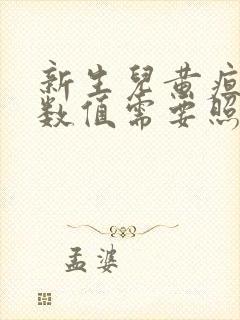 新生兒黄疸
数值需要照
孟婆